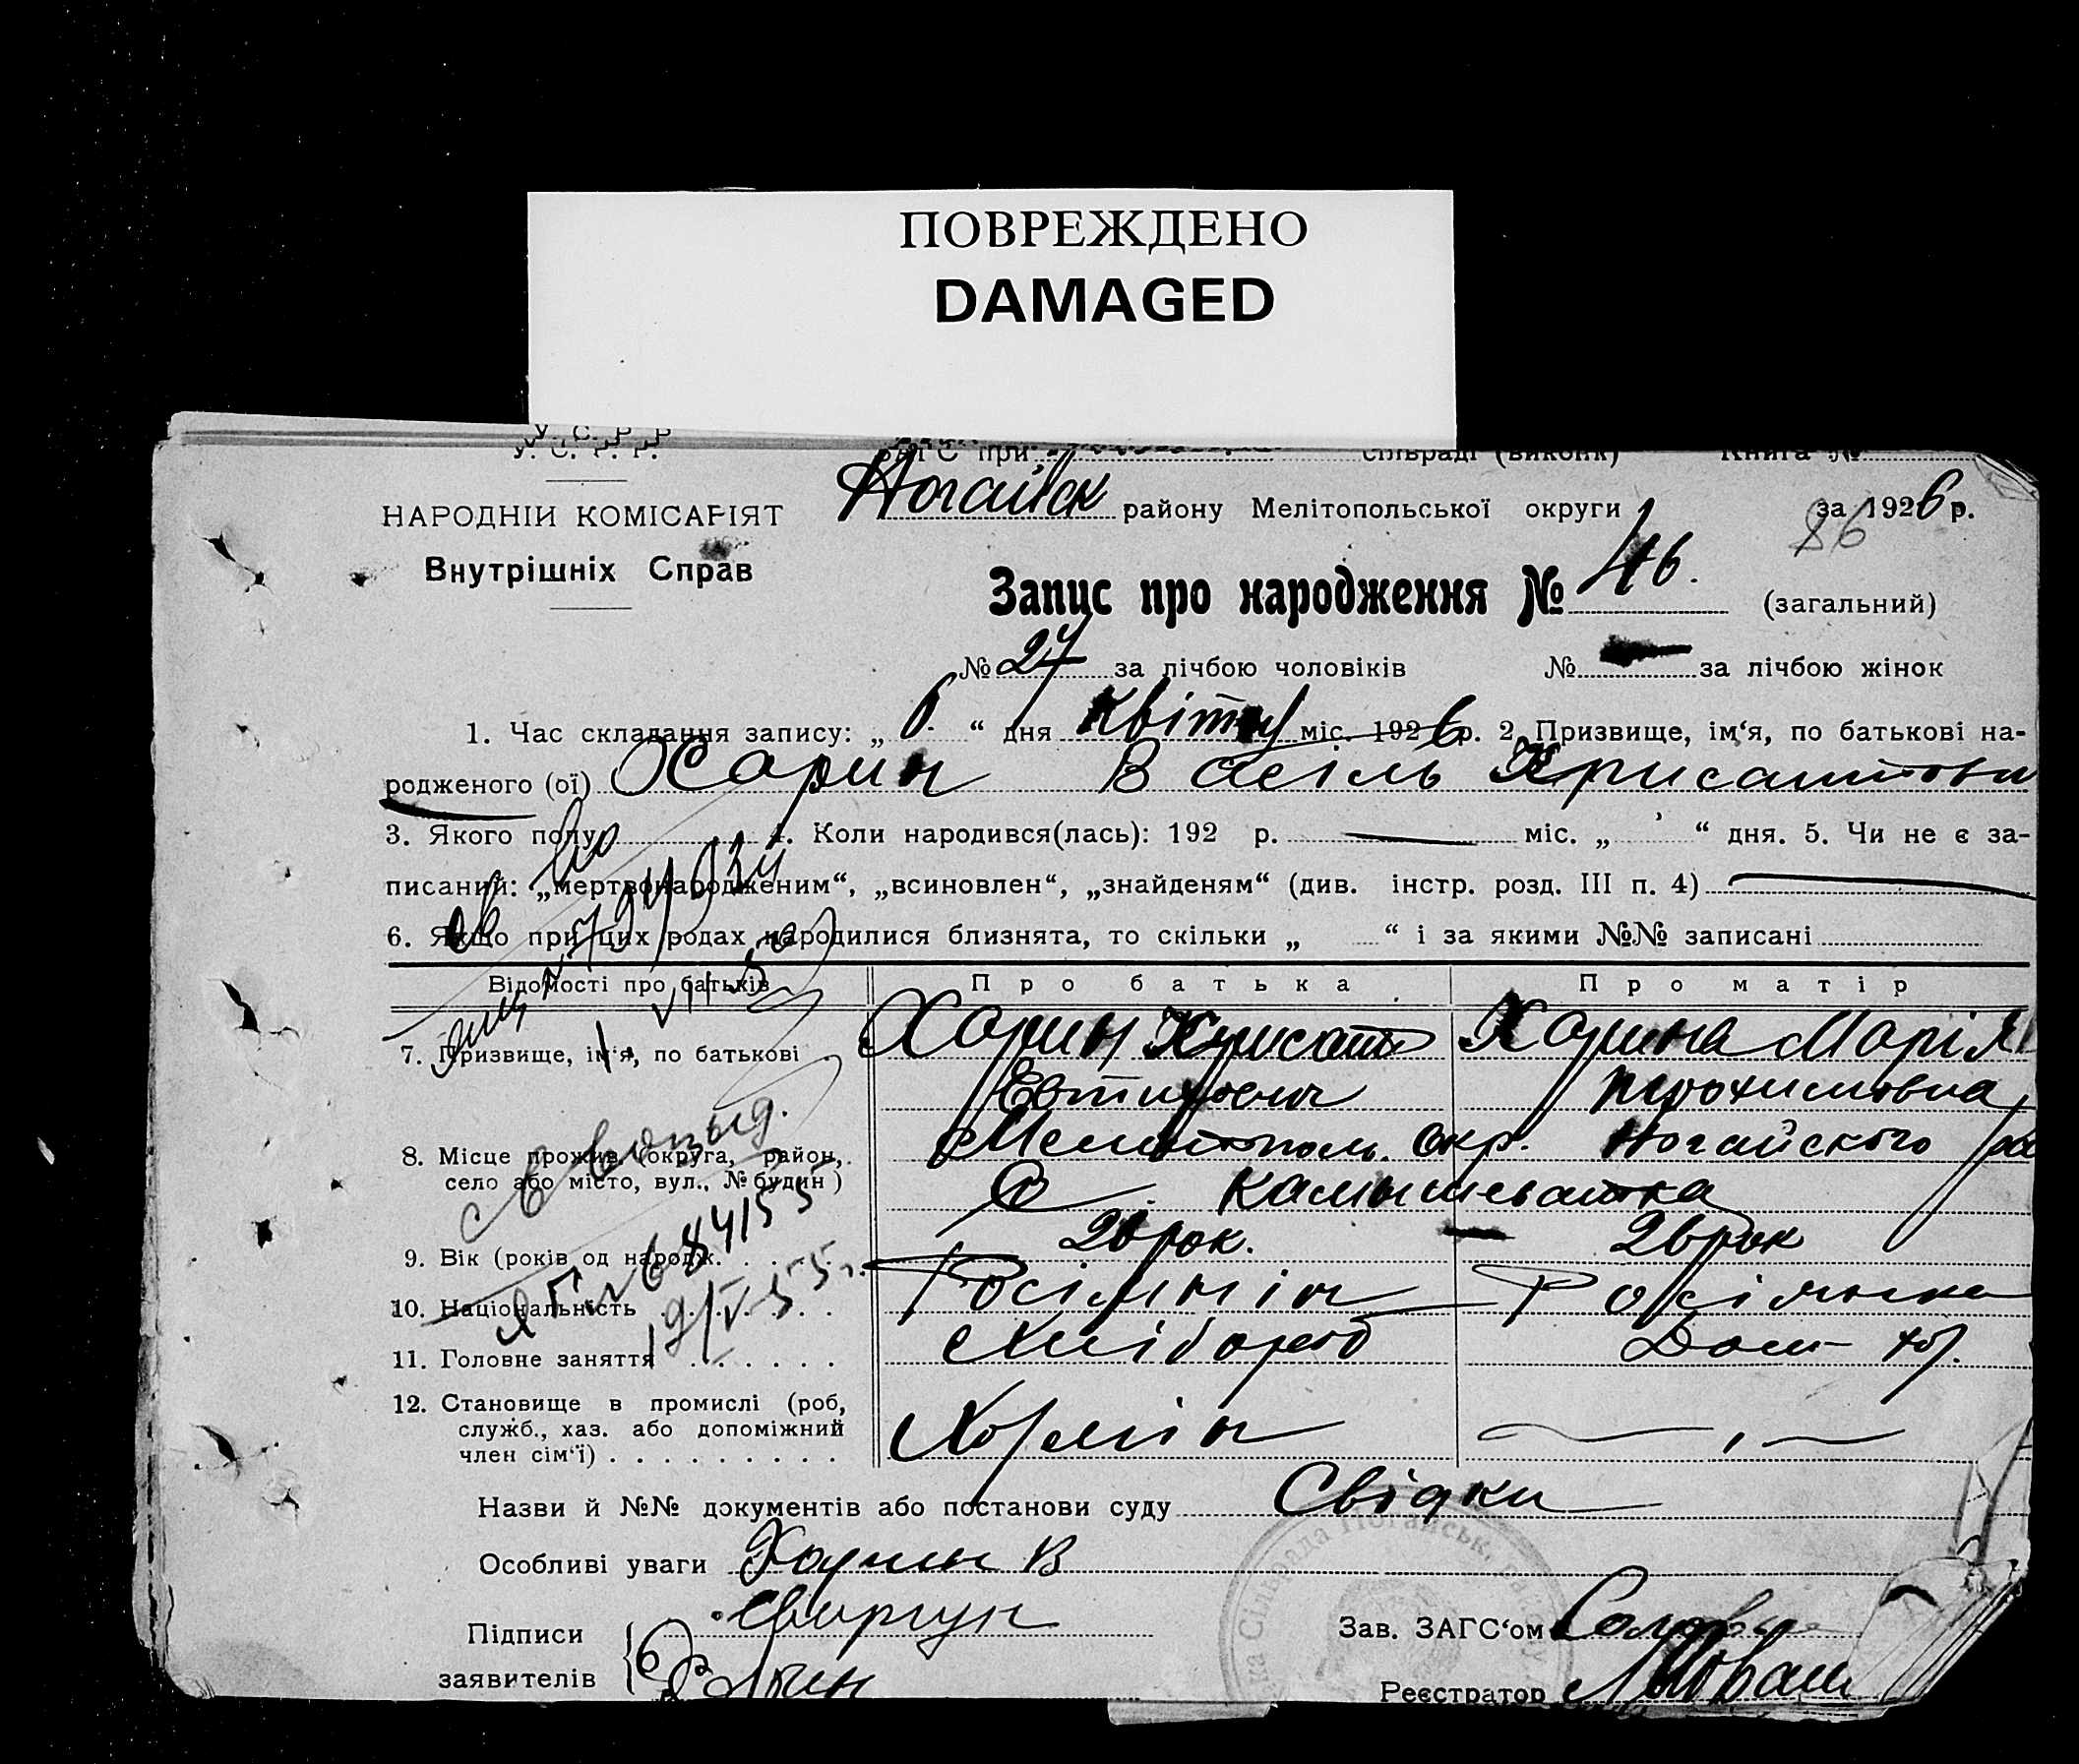 ПОВРЕЖДЕНО
DAMAGED
У. С. Р. Р.
ЗАГС при сільраді (виконк) Книга №
НАРОДНІЙ КОМІСАРІЯТ
Внутрішніх Справ
Ногайск району Мелітопольської округи за 1926 р.
86
Запис про народження № 46. (загальний)
№ 27 за лічбою чоловіків № за лічбою жінок
1. Час складання запису: „ 6 “ дня Квітня міс. 1926 р. 2. Призвище, ім‘я, по батькові на-
родженого (ої) Харин Василь Хрисантови
3. Якого полу 4. Коли народився(лась): 192 р. міс. „ “ дня. 5. Чи не є за-
писаний: „мертвонародженим“, „всиновлен“, „знайденям“ (див. інстр. розд. III п. 4)
6. Якщо при цих родах народилися близнята, то скільки „ “ і за якими №№ записані
Відомості про батьків Про батька Про матір
7. Призвище, ім‘я, по батькові Харин Хрисант Харина Марія
Трохимовна
8. Місце прожив. (округа, район, Мелитополь. Окр. Ногайского
село або місто, вул., № будин) С. Камышеватка
9. Вік (років од народж. 26 рок. 26 рок
10. Національність Росіянін Росіянка
11. Головне заняття Хлібороб Дом
12. Становище в промислі (роб,
служб., хаз. або допоміжний
член сім‘ї)
Назви й №№ документів або постанови суду Свідки
Особливі уваги Харин В
Підписи
заявителів
Зав. ЗАГС‘ом
Реєстратор